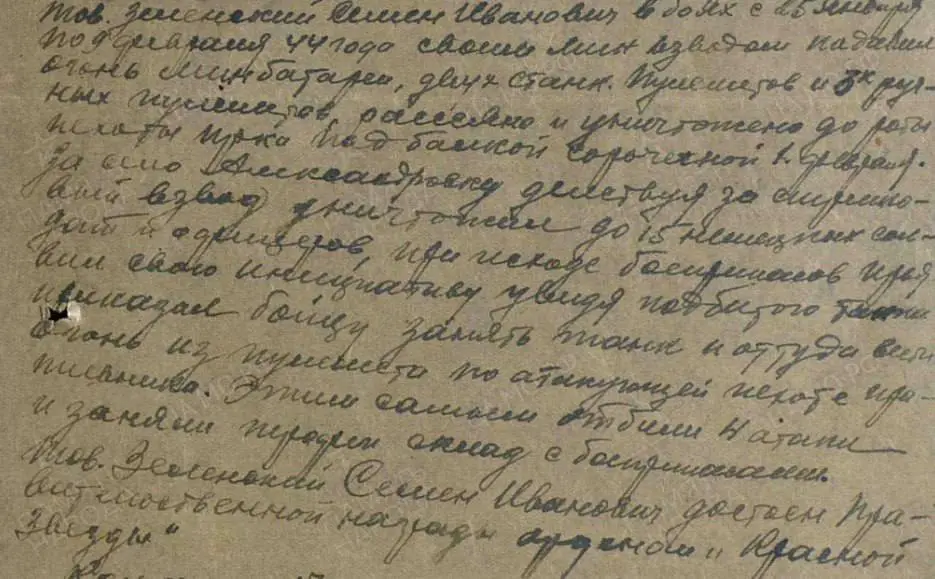 Тов. Зеленский Семен Иванович в боях с 25 января
по февраля 44 года своим мин взводом подавил
огонь минбатареи, двух станк. пулеметов и 5к руч-
ных пулеметов, рассеяно и уничтожено до роты
пехоты пр-ка под балкой Сорочечной 1 февраля.
За село Александровку действуя за стрелко-
вый взвод уничтожил до 15 немецких сол-
дат и офицеров, при исходе боеприпасов проя
вил свою инициативу увидя подбитого танка
приказал бойцу занять танк и оттуда вести
огонь из пулемета по атакующей пехоте про-
тивника. Этим самым отбили 4 атаки
и заняли трофеи склад с боеприпасами.
Тов. Зеленский Семен Иванович достоен пра-
вительственной награды орденом и Красной
Звезды"